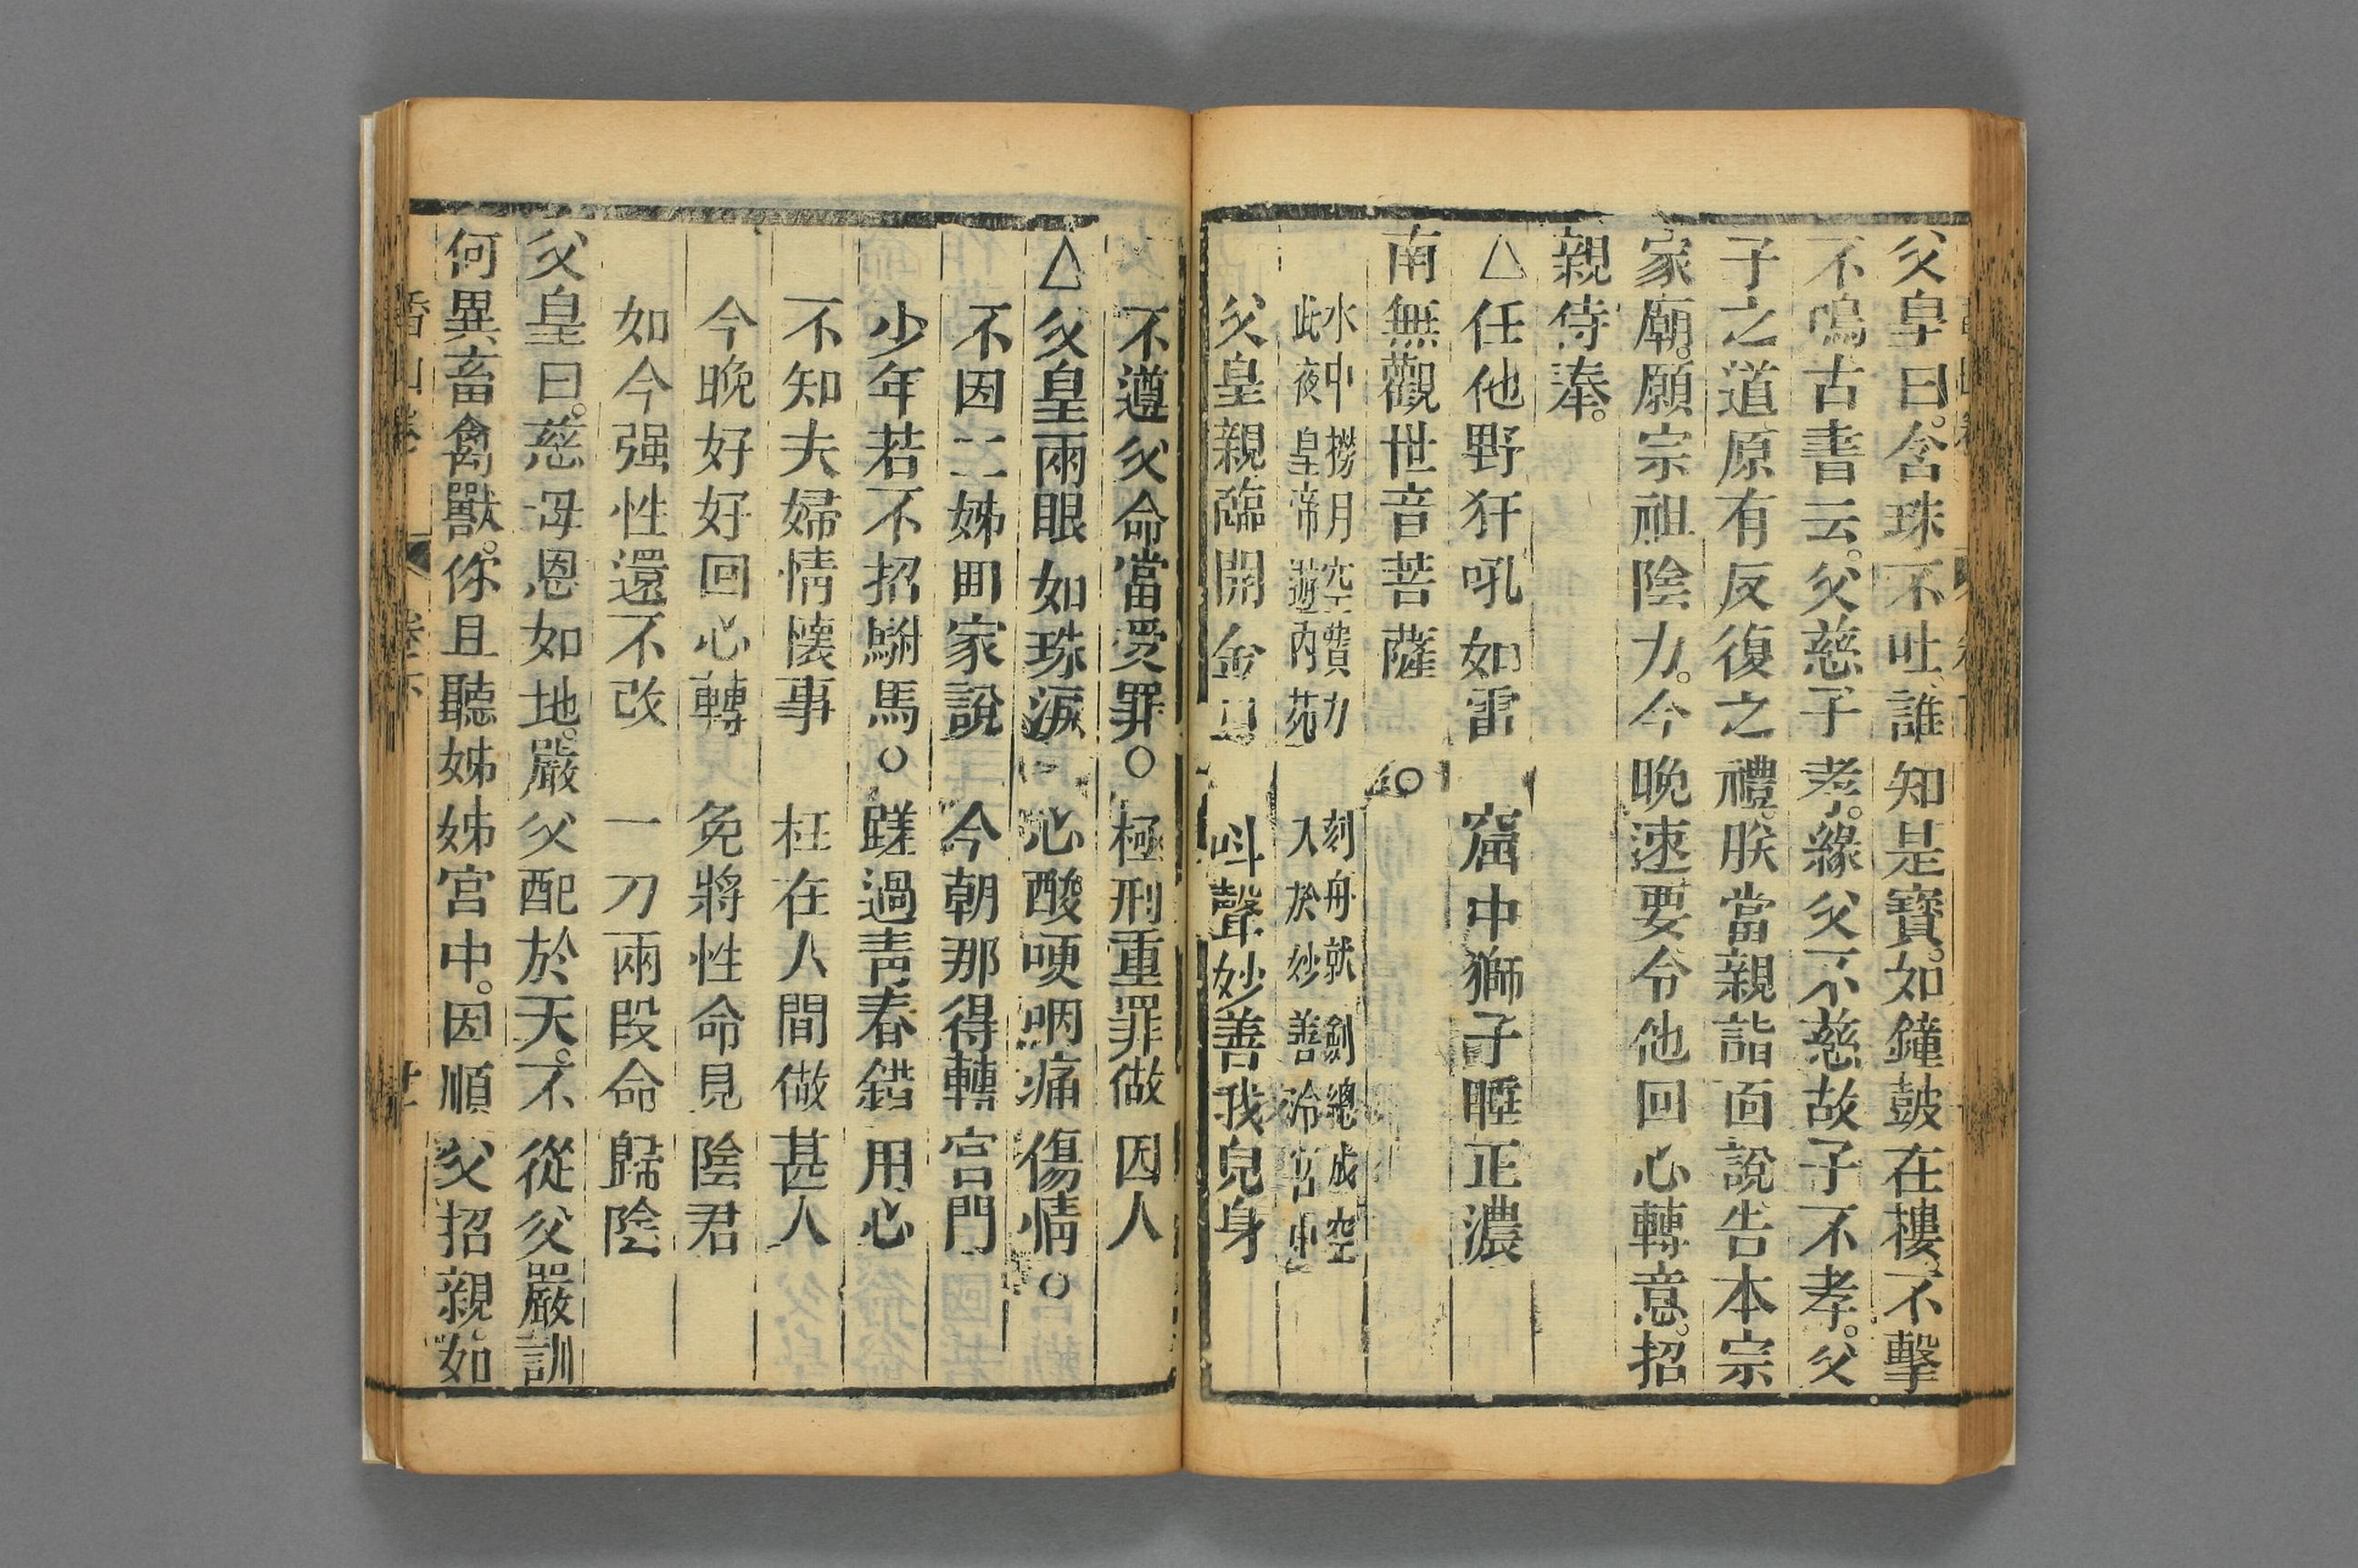 父皇曰。含珠不吐、誰知是寶。如鐘皷在樓、不擊
不鳴古書云。父慈子孝。緣父不慈故子不孝。父
子之道原有反復之禮。朕當親詣面說告本宗
家廟。願宗祖陰力。今晚速要令他回心轉意。招
親侍奉。
△任他野犴吼如雷 窟中獅子睡正濃
南無觀世音菩薩 ○
水中撈月空費力 刻舟就劍總成空
此夜皇帝遊內苑 入於妙善冷宮中
父皇親臨開金口 呌聲妙善我兒身
不遵父命當受罪○極刑重罪做囚人
△父皇兩眼如珠淚 心酸哽咽痛傷情○
不因二姊由家說 今朝那得轉宮門
少年若不招駙馬○蹉過靑春錯用心
不知夫婦情懷事 枉在人間做甚人
今晚好好回心轉 免將性命見陰君
如今强性還不改 一刀兩段命歸陰
父皇曰。慈母恩如地。嚴父配於天。不從父嚴訓
何異畜禽獸。你且聽姊姊宮中。因順父招親。如
香山卷 卷下 廿